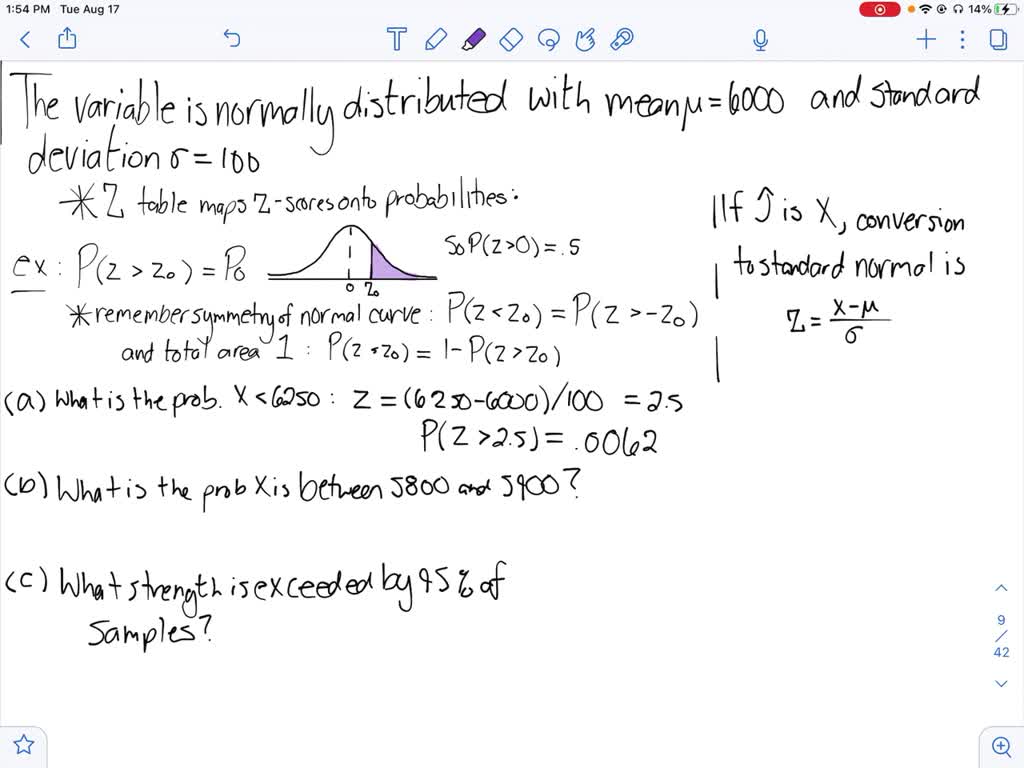 1:54 PM Tue Aug 17
14%
The variable is normally distributed with mean μ = 6000 and standard
deviation σ = 100
* Z table maps Z-scores onto probabilities:
ex: P(Z > Z₀) = P₀
0 Z₀
So P(Z>0) = .5
* remember symmetry of normal curve: P(Z < Z₀) = P(Z > -Z₀)
and total area 1: P(Z < Z₀) = 1 - P(Z > Z₀)
If is X, conversion
to standard normal is
Z = (X-μ)/σ
(a) What is the prob. X < 6250: Z = (6250-6000)/100 = 2.5
P(Z > 2.5) = .0062
(b) What is the prob X is between 5800 and 5900?
(c) What strength is exceeded by 95% of
samples?
9
/
42